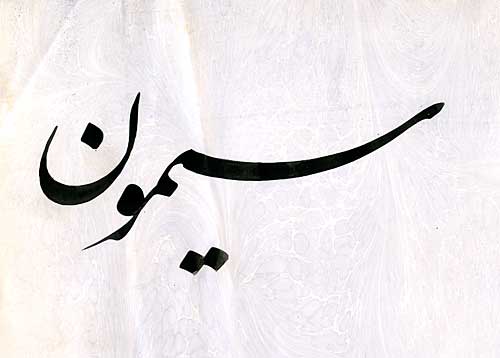 سیمون